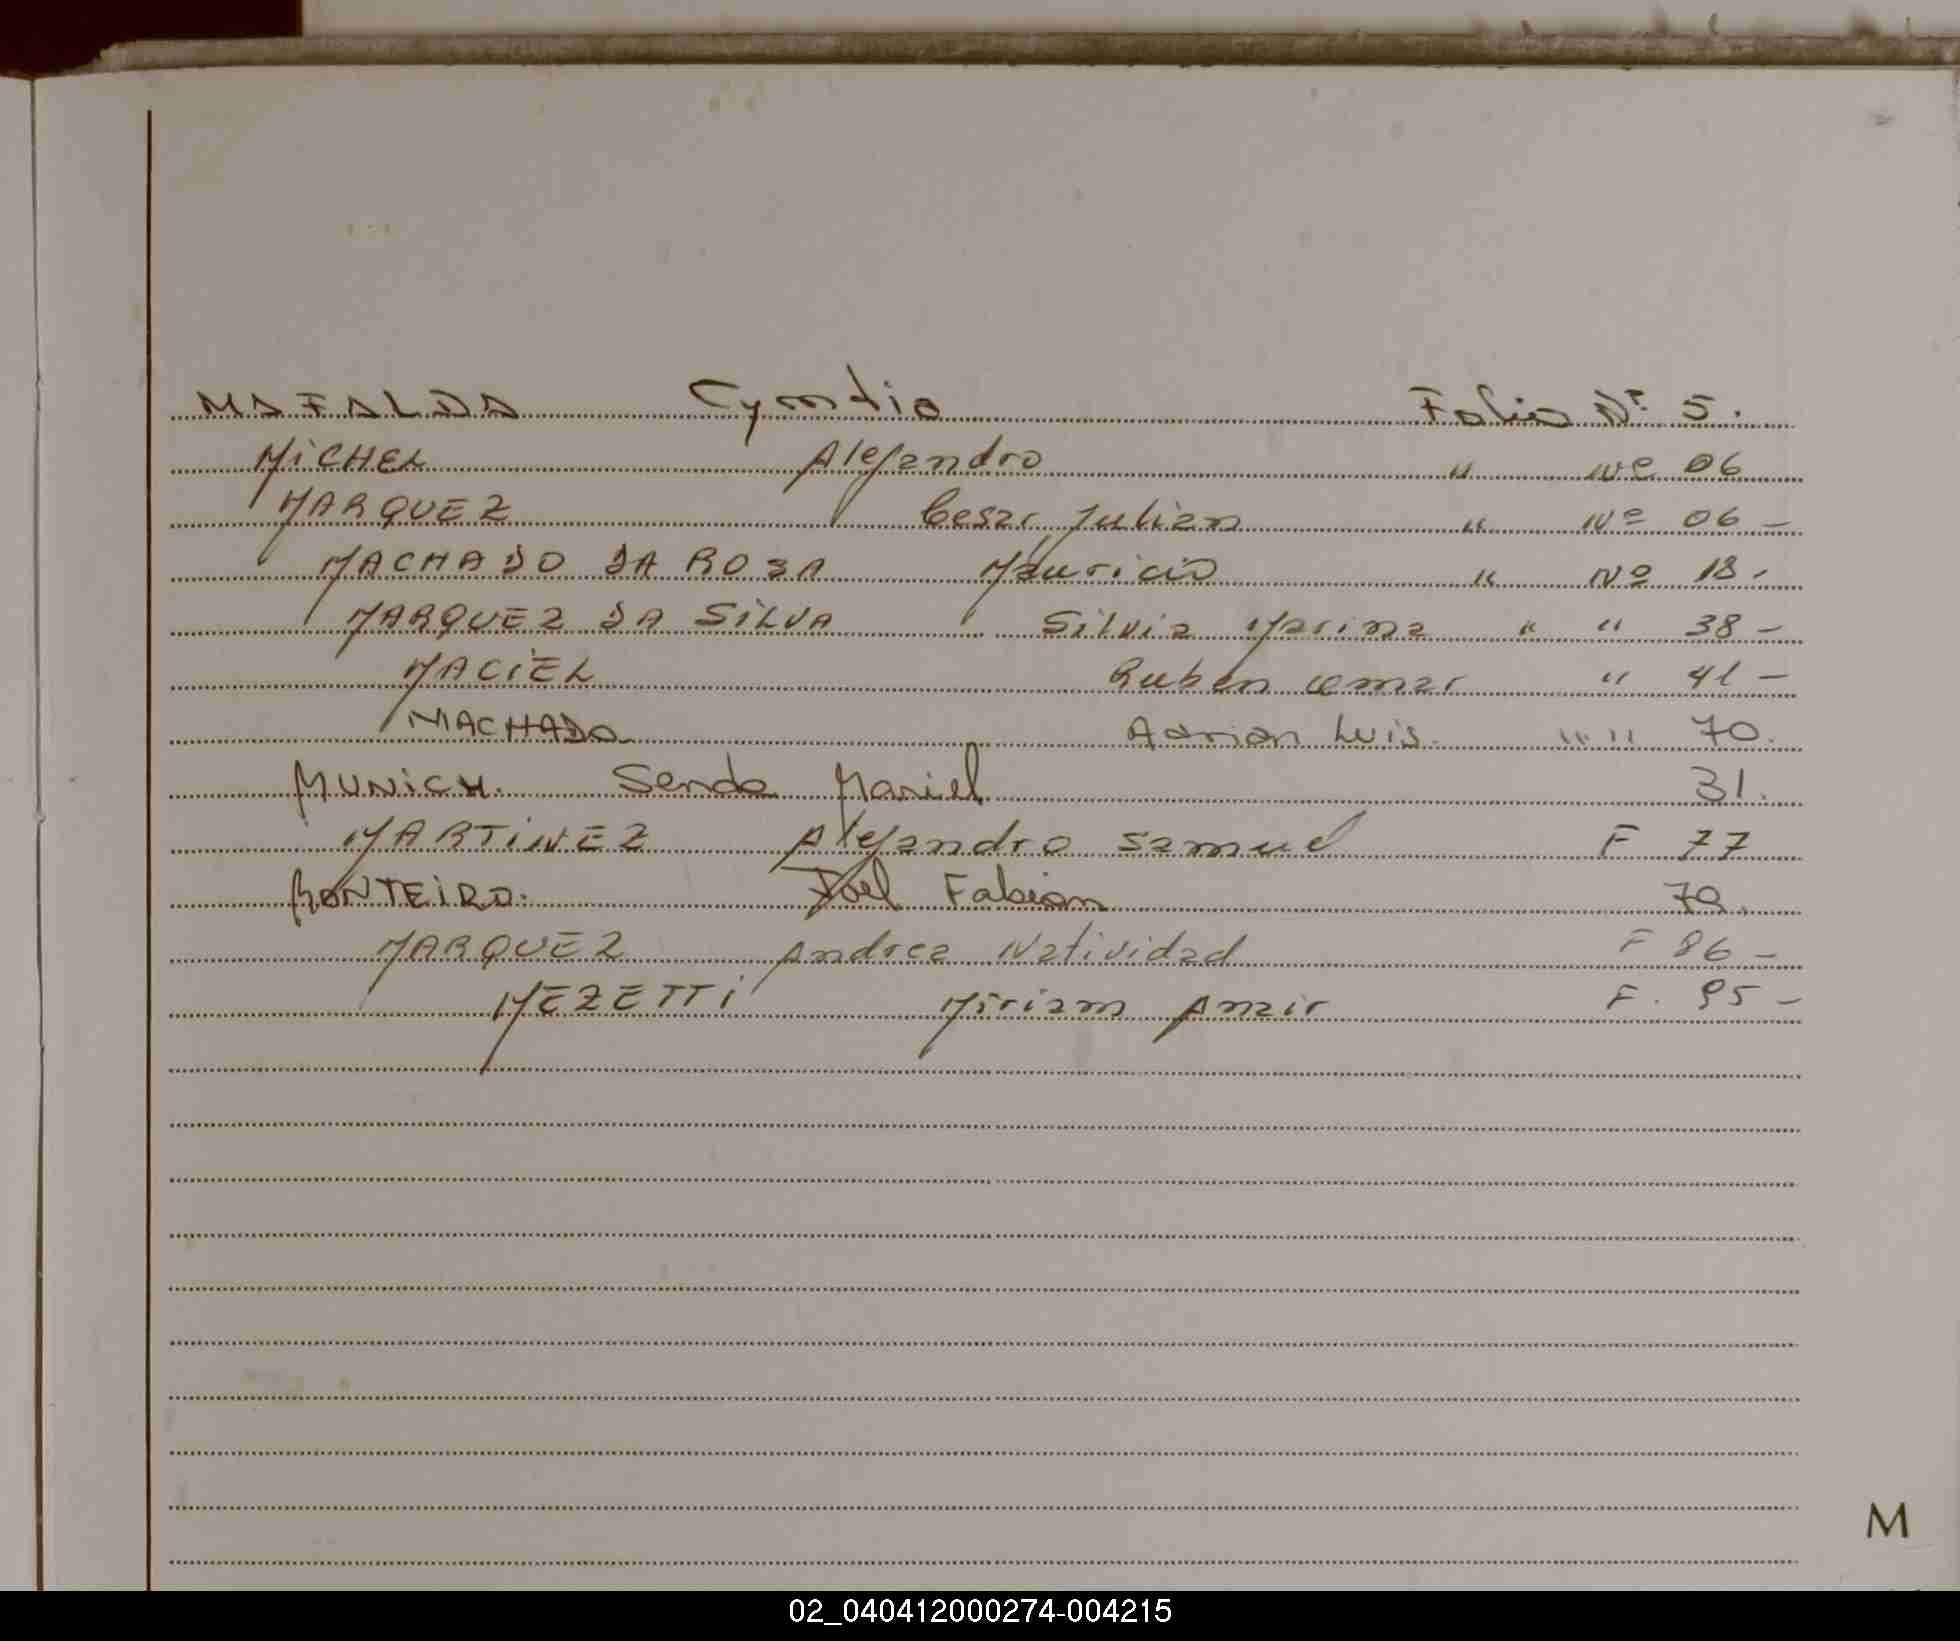 MAFALDA Cyntia Folio Nº 5.
MiCHEL Alejandro " Nº 06
MARQUEZ Cesar Julian " Nº 06 -
MACHADO DA ROSA Mauricio " Nº 18.-
MARQUEZ DA SiLVA Silvia Marina " " 38 -
MACiEL Ruben Omar " 41 -
MACHADO Adrian Luis. " " 70.
MUNiCH. Senda Mariel 31.
MARTiNEZ Alejandro Samuel F 77
MONTEiRO. Joel Fabian 79.
MARQUEZ Andrea Natividad F 86 -
MEZETTi Miriam Anair F. 95 -
M
02_040412000274-004215